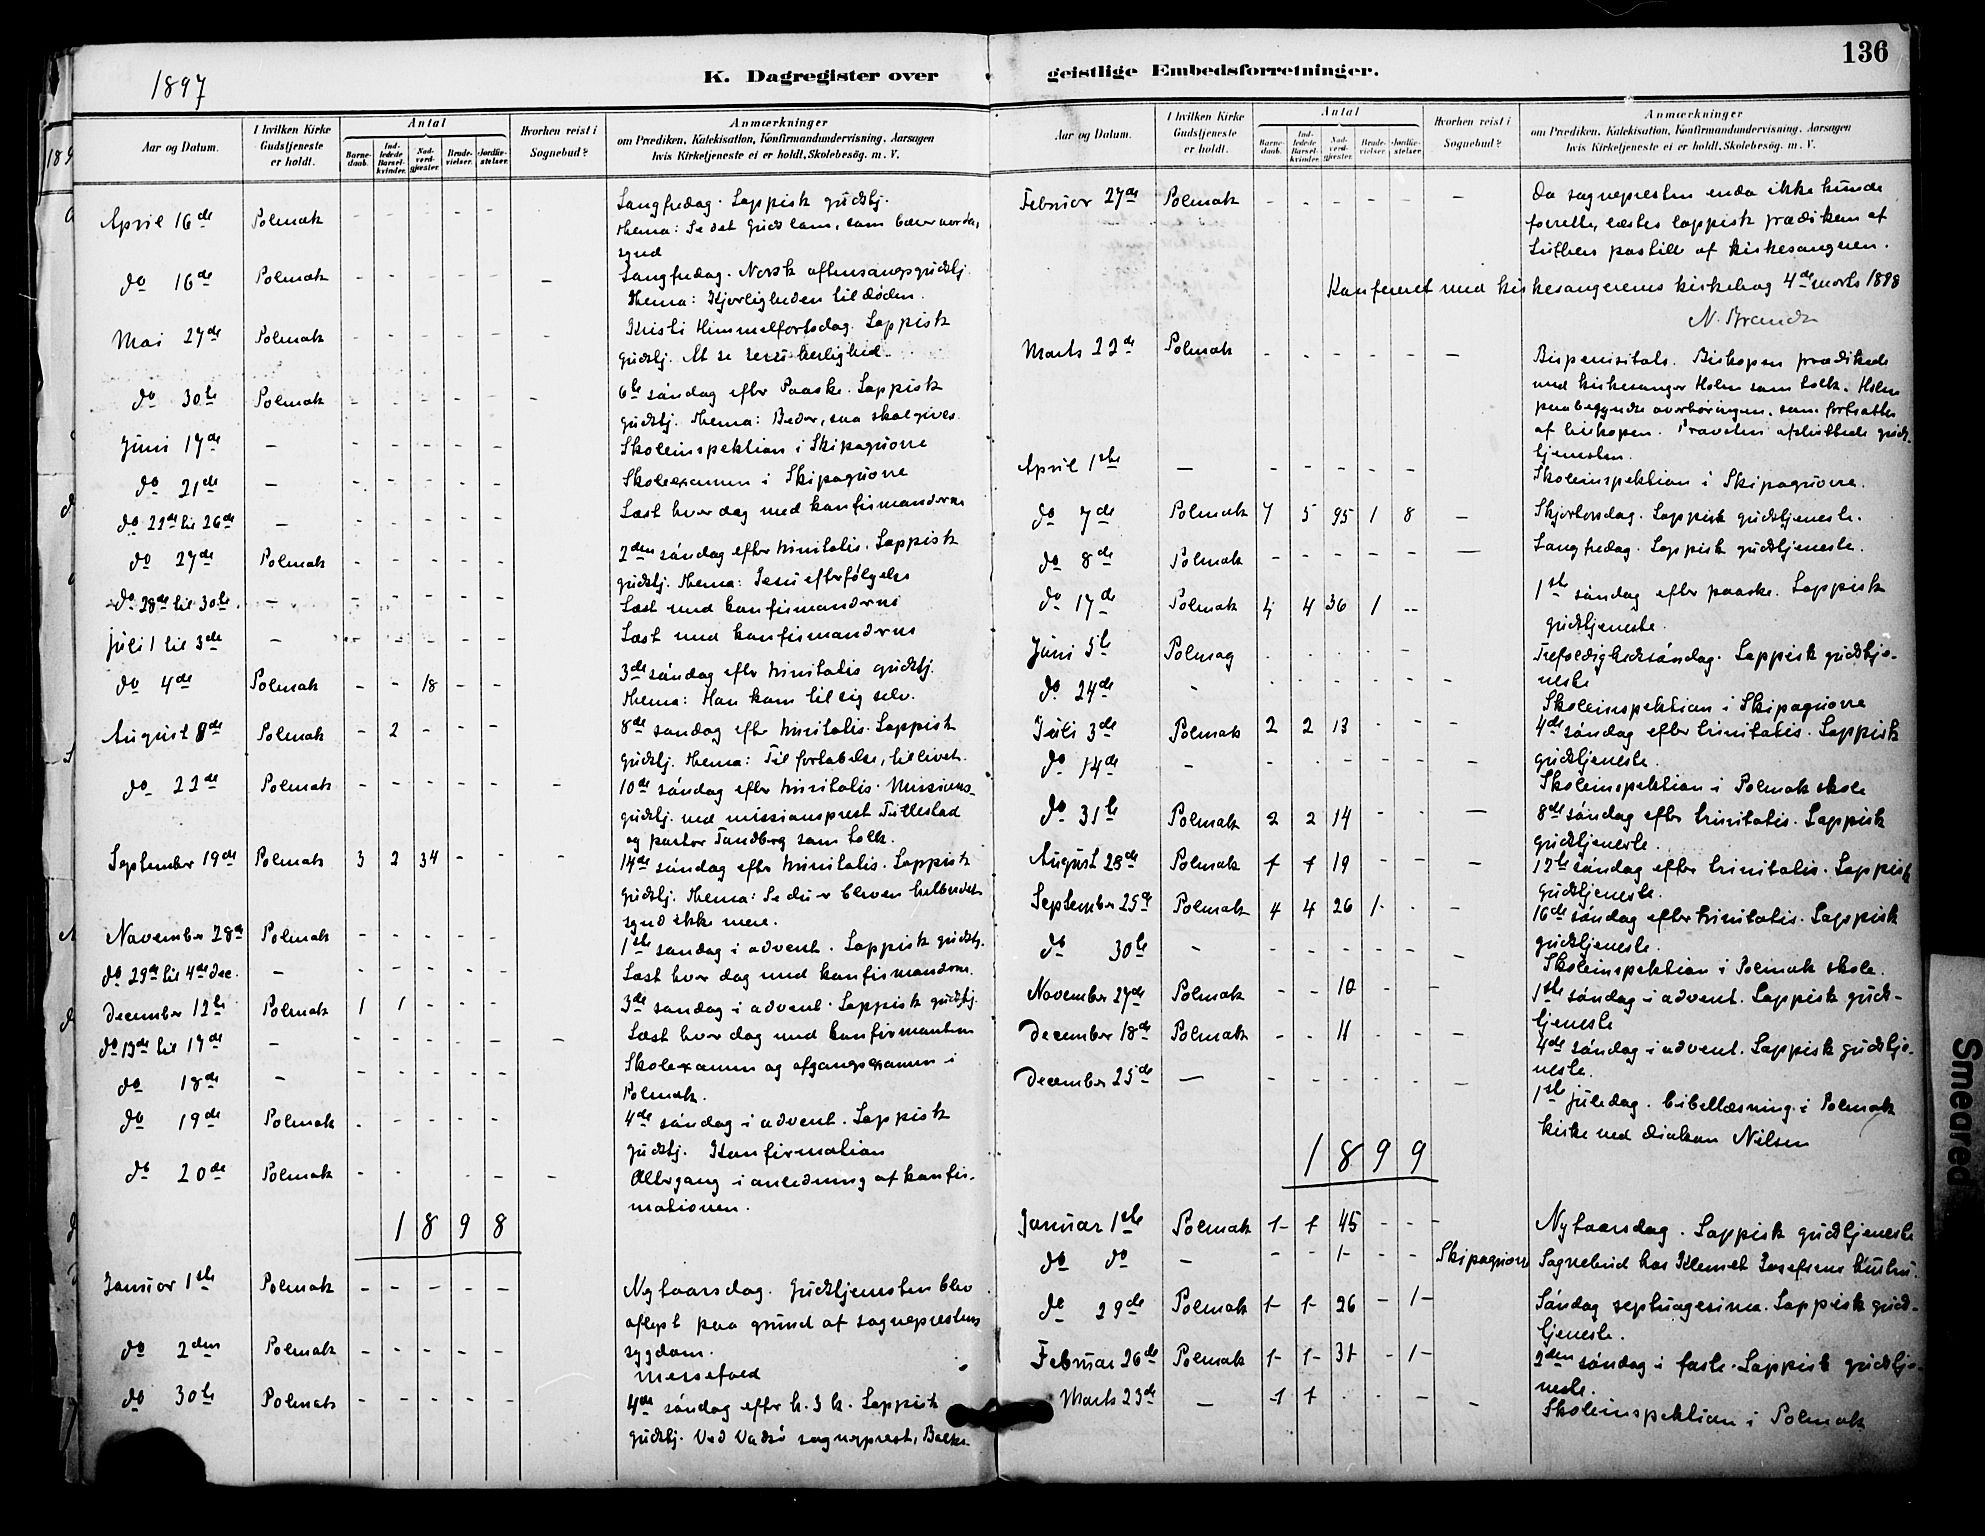 1897
K. Dagregister over
Aar og Datum.
I hvilken Kirke Gudstjeneste er holdt.
Antal
Barnedaab.
Indledede Barselkvinder.
Nadverdgjester.
Brudevielser.
Jordfæstelser.
Hvorhen reist i Sognebud?
Anmærkninger
om Prædiken, Katekisation, Konfirmandundervisning, Aarsagen
hvis Kirketjeneste ei er holdt, Skolebesøg. m. V.
April 16de Polmak - - - - - Langfredag. Lappisk gudstj.
Thema: Se det Guds lam, som bærer verdens
synd
do 16de Polmak - - - - - - Langfredag. Norsk aftensangsgudstj.
Thema: Kjærligheden til døden.
Mai 27de Polmak - - - - - - Kristi Himmelfartsdag. Lappisk
gudstj. At se Jesu herlighed.
do 30te Polmak - - - - - - 6te søndag efter Paaske. Lappisk
gudstj. Thema: Beder, saa skal gives.
Juni 17de - - - - - - Skoleinspektion i Skipaguorre
do 21de - - - - - - Skoleexamen i Skipaguorre
do 22de til 26de - - - - - - Læst hver dag med konfirmanderne
do 27de Polmak - - - - - 2den søndag efter trinitatis. Lappisk
gudstj. Thema: Jesu efterfølgelse
do 28de til 30te - - - - - - Læst med konfirmanderne
Juli 1 til 3de - - - - - - Læst med konfirmanderne
do 4de Polmak - - 18 - - 3de søndag efter trinitatis gudstj.
Thema: Han kom til sig selv.
August 8de Polmak - 2 - - - 8de søndag efter trinitatis. Lappisk
gudstj. Thema: Til fortabelse, til livet.
do 22de Polmak - - - - - - 10de søndag efter trinitatis. Missions-
gudstj. ved missionsprest Tullestad
og pastor Tandberg som tolk.
September 19de Polmak 3 2 34 - - - 14de søndag efter trinitatis. Lappisk
gudstj. Thema: Se du er bleven helbredet
synd ikke mere.
November 28de Polmak - - - - - 1ste søndag i advent. Lappisk gudstj.
do 29de til 4de dec. - - - - - - Læst hver dag med konfirmandrne.
December 12te Polmak 1 1 - - - 3de søndag i advent. Lappisk gudstj.
do 13de til 17de - - - - - - - Læst hver dag med konfirmanterne
do 18de - - - - - - Skoleexamen og afgangsexamen i
Polmak.
do 19de Polmak - - - - - 4de søndag i advent. Lappisk
gudstj. Konfirmation
do 20de Polmak - - - - - Altergang i anledning af konfir-
mationen.
1898
Januar 1ste Polmak - - - - - Nytaarsdag. Gudstjenesten blev
aflyst paa grund af sogneprestens
sygdom.
do 2den Polmak - - - - - Messefald
do 30te Polmak - - - - - 4de søndag efter h. 3 k. Lappisk
gudstj. Ved Vadsø sogneprest, Balke
136
geistlige Embedsforretninger.
Aar og Datum.
I hvilken Kirke Gudstjeneste er holdt.
Antal
Barnedaab.
Indledede Barselkvinder.
Nadverdgjester.
Brudevielser.
Jordfæstelser.
Hvorhen reist i Sognebud?
Anmærkninger
om Prædiken, Katekisation, Konfirmandundervisning, Aarsagen
hvis Kirketjeneste ei er holdt, Skolebesøg. m. V.
Februar 27de Polmak - - - - - - Da sognepresten enda ikke kunde
forrette, læstes lappisk prædiken af
Luthers postille af kirkesangeren.
Konfereret med kirkesangerens kirkebog 4de marts 1898
N. Brandt
Marts 22de Polmak - - - - - - Bispevisitats. Biskopen prædikede
med kirkesanger Holm som tolk. Holm
paabegyndte overhøringen, som fortsattes
af biskopen. Provsten afsluttede guds-
tjenesten.
April 1ste - - - - - - Skoleinspektion i Skipaguorre.
do 7de Polmak 7 5 95 1 8 - Skjærtorsdag. Lappisk gudstjeneste.
do 8de Polmak - - - - - - Langfredag. Lappisk gudstjeneste.
do 17de Polmak 4 4 36 1 - 1ste søndag efter paaske. Lappisk
gudstjeneste.
Juni 5te Polmag - - - - - Trefoldighedssøndag. Lappisk gudstje-
neste
do 24de - - - - - - - Skoleinspektion i Skipaguorre
Juli 3de Polmak 2 2 13 - - - 4de søndag efter trinitatis. Lappisk
gudstjeneste.
do 14de - - - - - - - Skoleinspektion i Polmak skole
do 31te Polmak 2 2 14 - - - 8de søndag efter trinitatis. Lappisk
gudstjeneste.
August 28de Polmak 1 1 19 - - - 12te søndag efter trinitatis. Lappisk
gudstjeneste.
September 25de Polmak 4 4 26 1 - - 16de søndag efter trinitatis. Lappisk
gudstjeneste.
do 30te - - - - - - - Skoleinspektion i Polmak skole.
November 27de Polmak - - 10 - - 1ste søndag i advent. Lappisk guds-
tjeneste
December 18de Polmak - - 11 - - - 4de søndag i advent. Lappisk gudstje-
neste.
December 25de - - - - - - - 1ste juledag. Bibellæsning i Polmak
kirke ved diakon Nilsen
1899
Januar 1ste Polmak 1 1 45 - - - Nytaarsdag. Lappisk gudstjeneste
do do - - - 1 - - Skipaguorre Sognebud hos Klemet Josefsens hustru.
do 29de Polmak 1 1 26 - 1 Søndag septuagesima. Lappisk guds-
tjeneste.
Februar 26de Polmak 1 1 31 - 1 2den søndag i faste. Lappisk gudstje-
neste.
Marts 23de - 1 1 - - - - Skoleinspektion i Polmak
Smeared